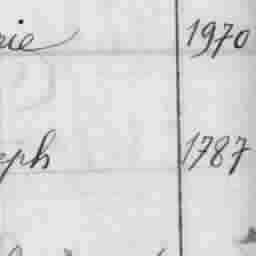 rie 1970
eph 1787